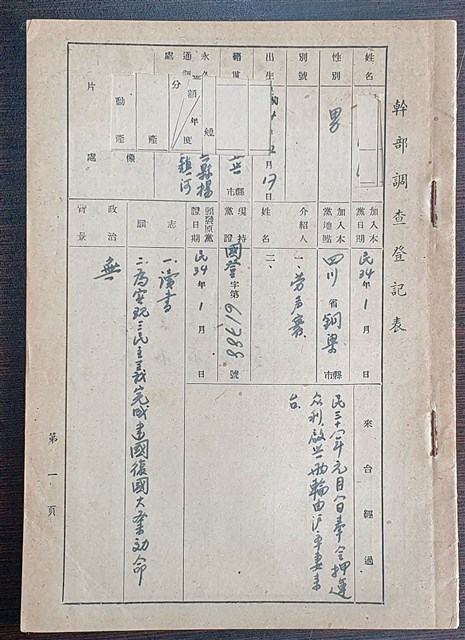 幹部調查登記表
姓名
性別 男
別號
出生 月 17 日
籍 縣市
永久通訊處 縣楊鎮河
分 額 年 度
動產
產
片
像
處
加入本黨日期 民34年1月 日
加入本黨地點 四川省銅梁縣市
介紹人姓名 一、 二、
現持黨證 國登字第67988號
領發原黨證日期 民34年1月 日
志願 一、讀書
二、為實現三民主義完成建國復國大業効命
政治背景 無
來台經過
民三十八年元月 日奉令押運
眾利啟興兩輪由滬 來
台
第一頁